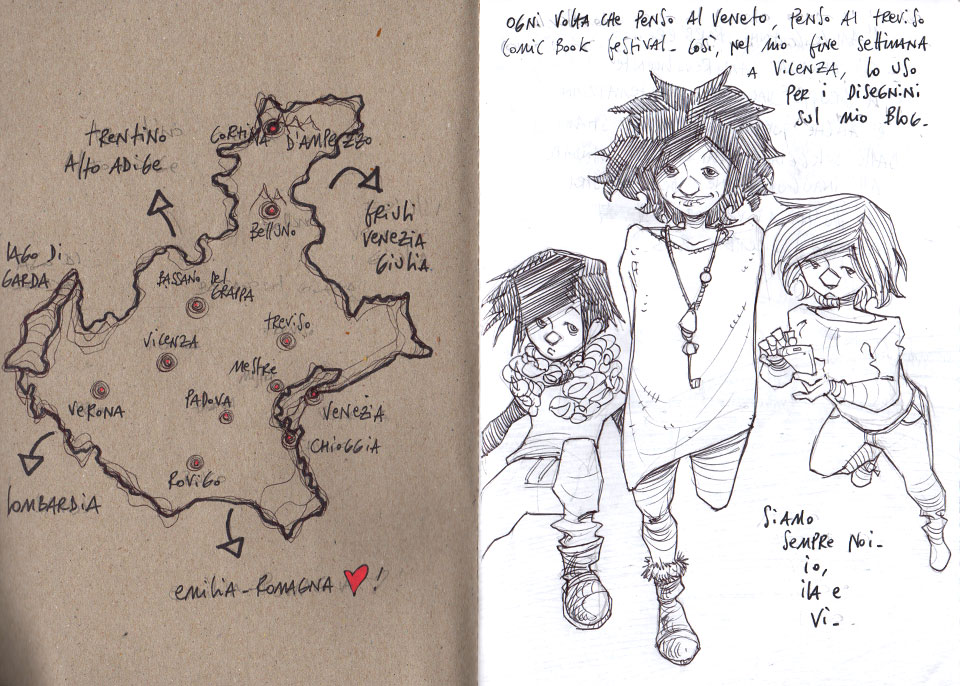 TRENTINO
ALTO ADIGE
CORTINA D'AMPEZZO
BELLUNO
FRIULI
VENEZIA
GIULIA
LAGO DI
GARDA
BASSANO DEL
GRAPPA
VICENZA
TREVISO
MESTRE
VERONA
PADOVA
VENEZIA
CHIOGGIA
ROVIGO
LOMBARDIA
EMILIA-ROMAGNA !
OGNI VOLTA CHE PENSO AL VENETO, PENSO AL TREVISO
COMIC BOOK FESTIVAL- COSÌ, NEL MIO FINE SETTIMANA
A VICENZA, LO USO
PER I DISEGNINI
SUL MIO BLOG-
SIAMO
SEMPRE NOI-
IO,
ILA E
VÌ-